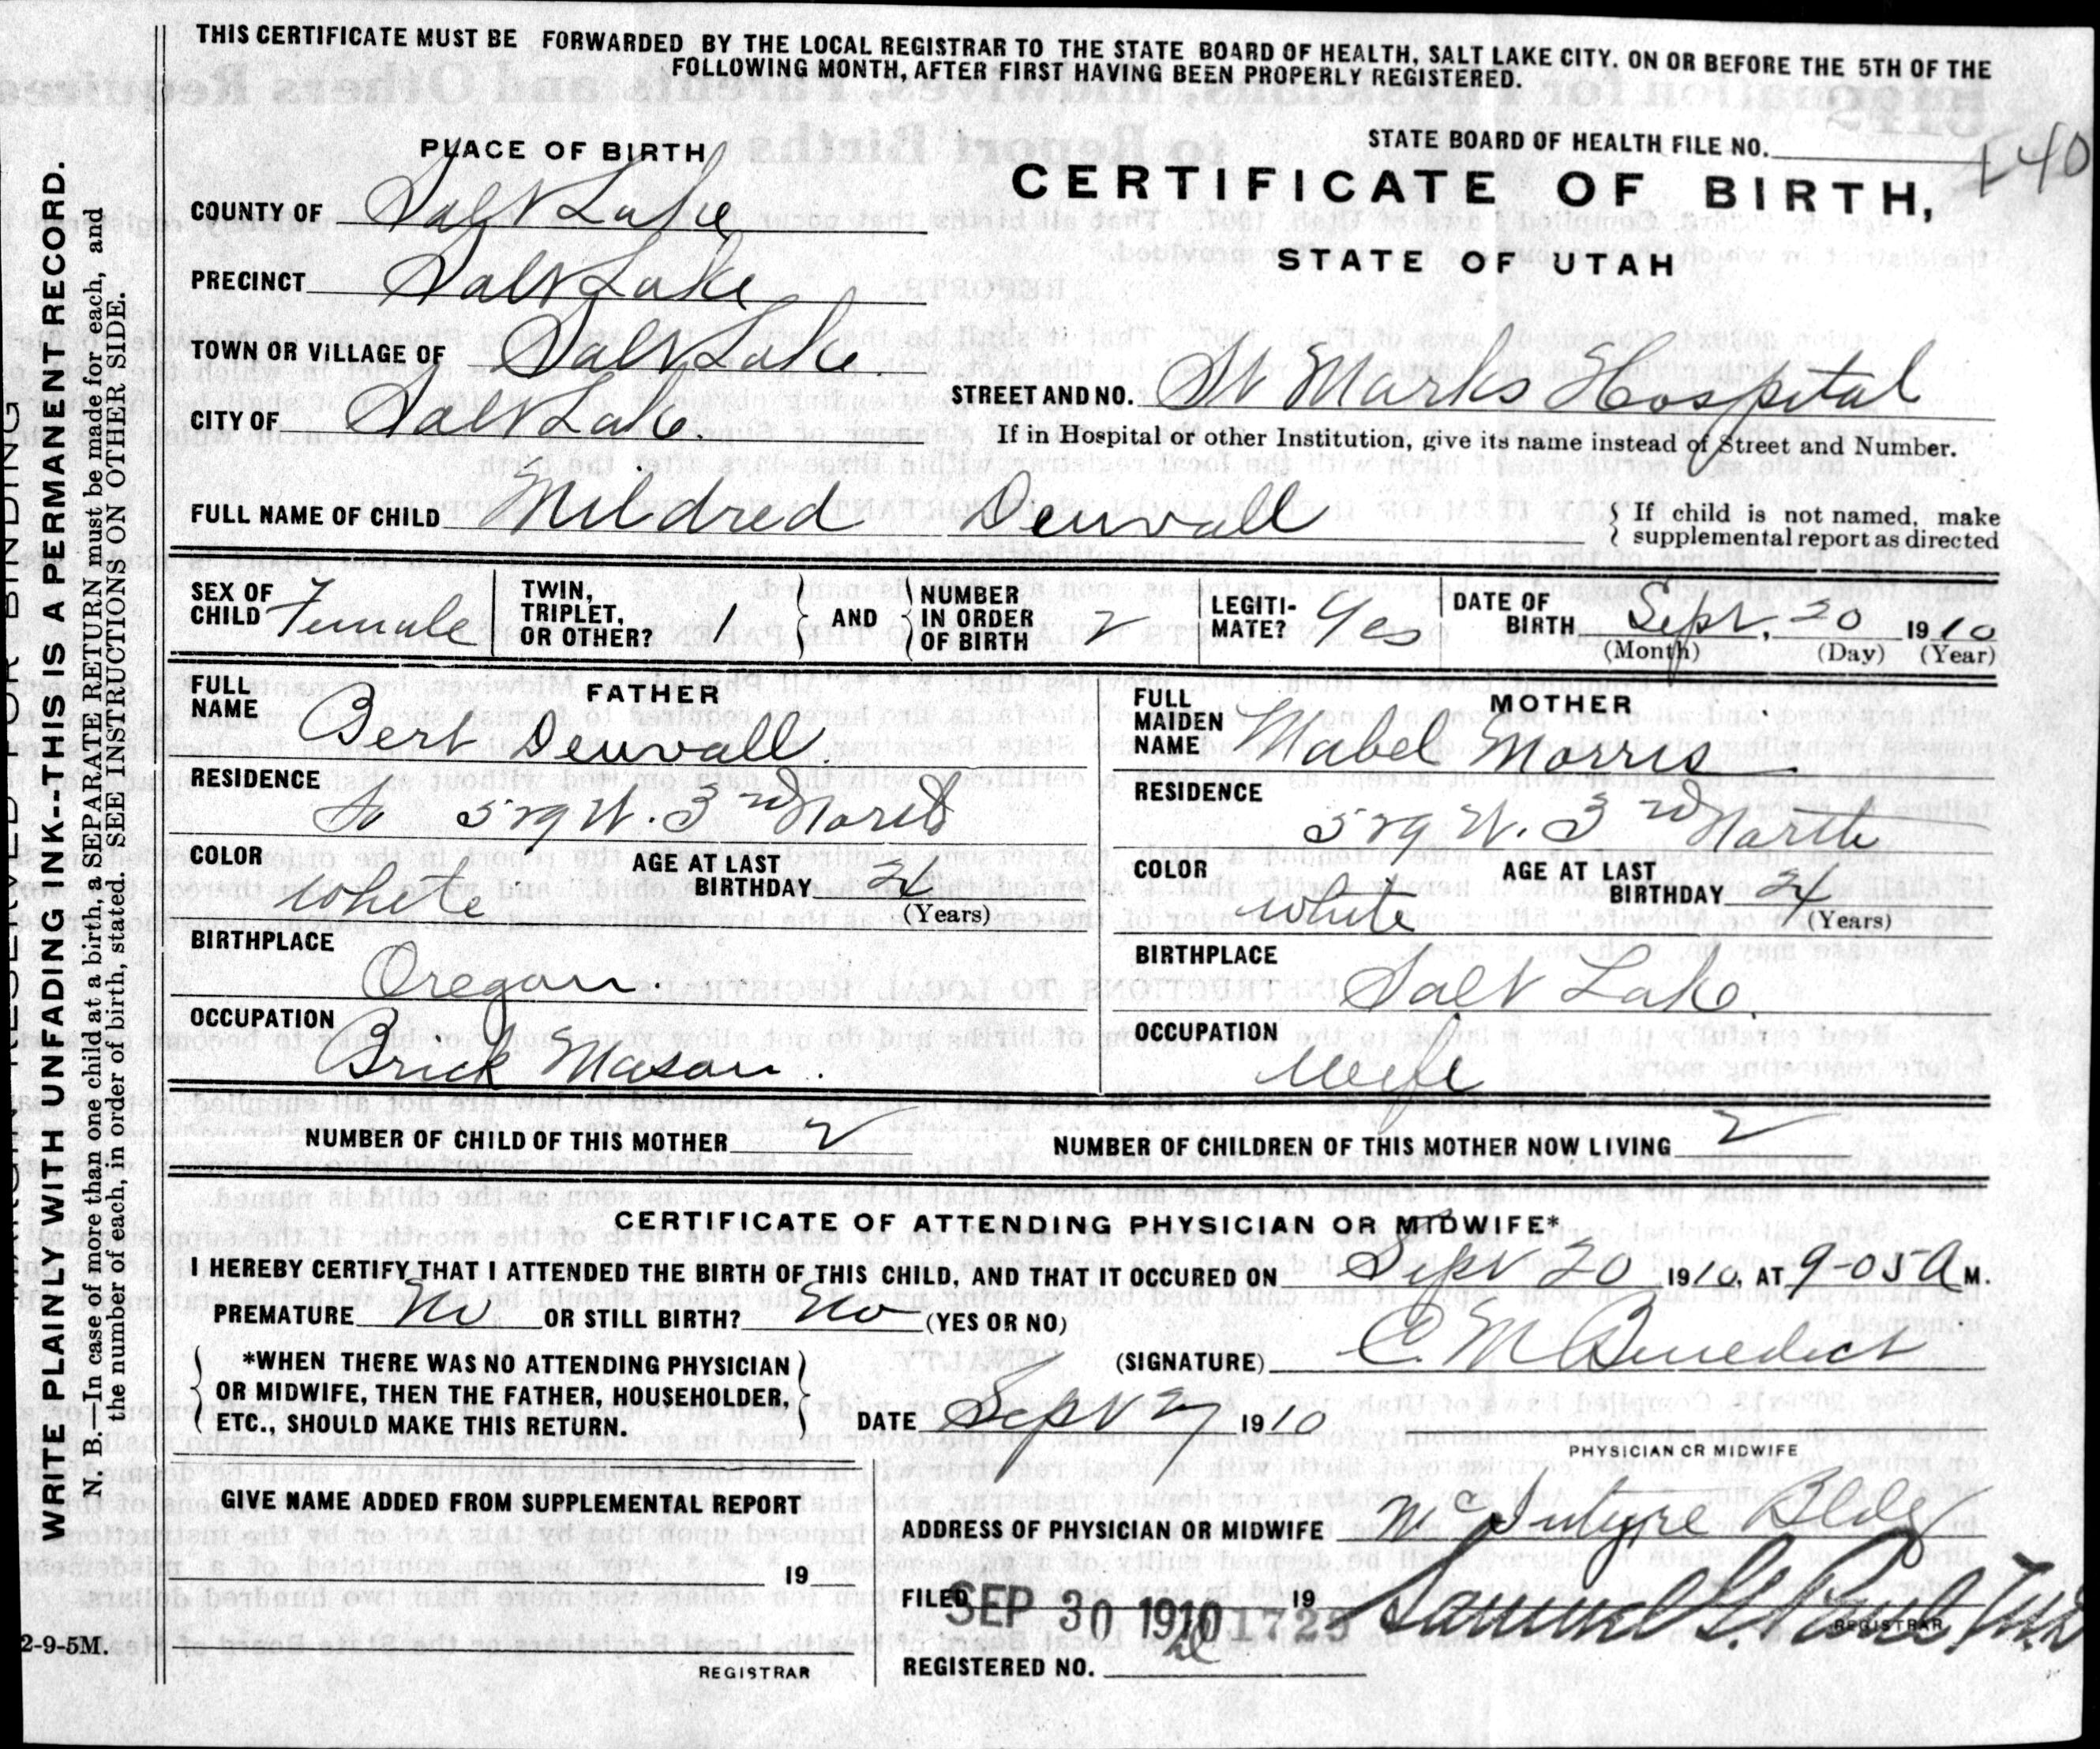 THIS CERTIFICATE MUST BE FORWARDED BY THE LOCAL REGISTRAR TO THE STATE BOARD OF HEALTH, SALT LAKE CITY. ON OR BEFORE THE 5TH OF THE
FOLLOWING MONTH, AFTER FIRST HAVING BEEN PROPERLY REGISTERED.
WRITE PLAINLY WITH UNFADING INK--THIS IS A PERMANENT RECORD.
N. B.—In case of more than one child at a birth, a SEPARATE RETURN must be made for each, and
the number of each, in order of birth, stated. SEE INSTRUCTIONS ON OTHER SIDE.
STATE BOARD OF HEALTH FILE NO. 140
PLACE OF BIRTH
CERTIFICATE OF BIRTH,
STATE OF UTAH
COUNTY OF Salt Lake
PRECINCT Salt Lake
TOWN OR VILLAGE OF Salt Lake
CITY OF Salt Lake.
STREET AND NO. St Marks Hospital
If in Hospital or other Institution, give its name instead of Street and Number.
FULL NAME OF CHILD Mildred Deuvall
If child is not named, make
supplemental report as directed
SEX OF CHILD Female
TWIN, TRIPLET, OR OTHER? 1
AND NUMBER IN ORDER OF BIRTH 2
LEGITI-MATE? Yes
DATE OF BIRTH Sept. 20 1910
(Month) (Day) (Year)
FATHER
FULL NAME Bert Deuvall.
RESIDENCE
529 W. 3rd North
COLOR white
AGE AT LAST BIRTHDAY 24
(Years)
BIRTHPLACE
Oregon.
OCCUPATION
Brick Mason.
MOTHER
FULL MAIDEN NAME Mabel Morris
RESIDENCE
529 W. 3rd North
COLOR white
AGE AT LAST BIRTHDAY 24
(Years)
BIRTHPLACE
Salt Lake.
OCCUPATION
Wife
NUMBER OF CHILD OF THIS MOTHER 2
NUMBER OF CHILDREN OF THIS MOTHER NOW LIVING 2
CERTIFICATE OF ATTENDING PHYSICIAN OR MIDWIFE*
I HEREBY CERTIFY THAT I ATTENDED THE BIRTH OF THIS CHILD, AND THAT IT OCCURED ON Sept 20 1910, AT 9-05 A M.
PREMATURE No OR STILL BIRTH? No (YES OR NO)
*WHEN THERE WAS NO ATTENDING PHYSICIAN
OR MIDWIFE, THEN THE FATHER, HOUSEHOLDER,
ETC., SHOULD MAKE THIS RETURN.
(SIGNATURE) C. M Benedict
DATE Sept 27 1910
PHYSICIAN OR MIDWIFE
GIVE NAME ADDED FROM SUPPLEMENTAL REPORT
19
REGISTRAR
ADDRESS OF PHYSICIAN OR MIDWIFE McIntyre Bldg
FILED SEP 30 1910 19
1725
REGISTRAR
REGISTERED NO.
2-9-5M.